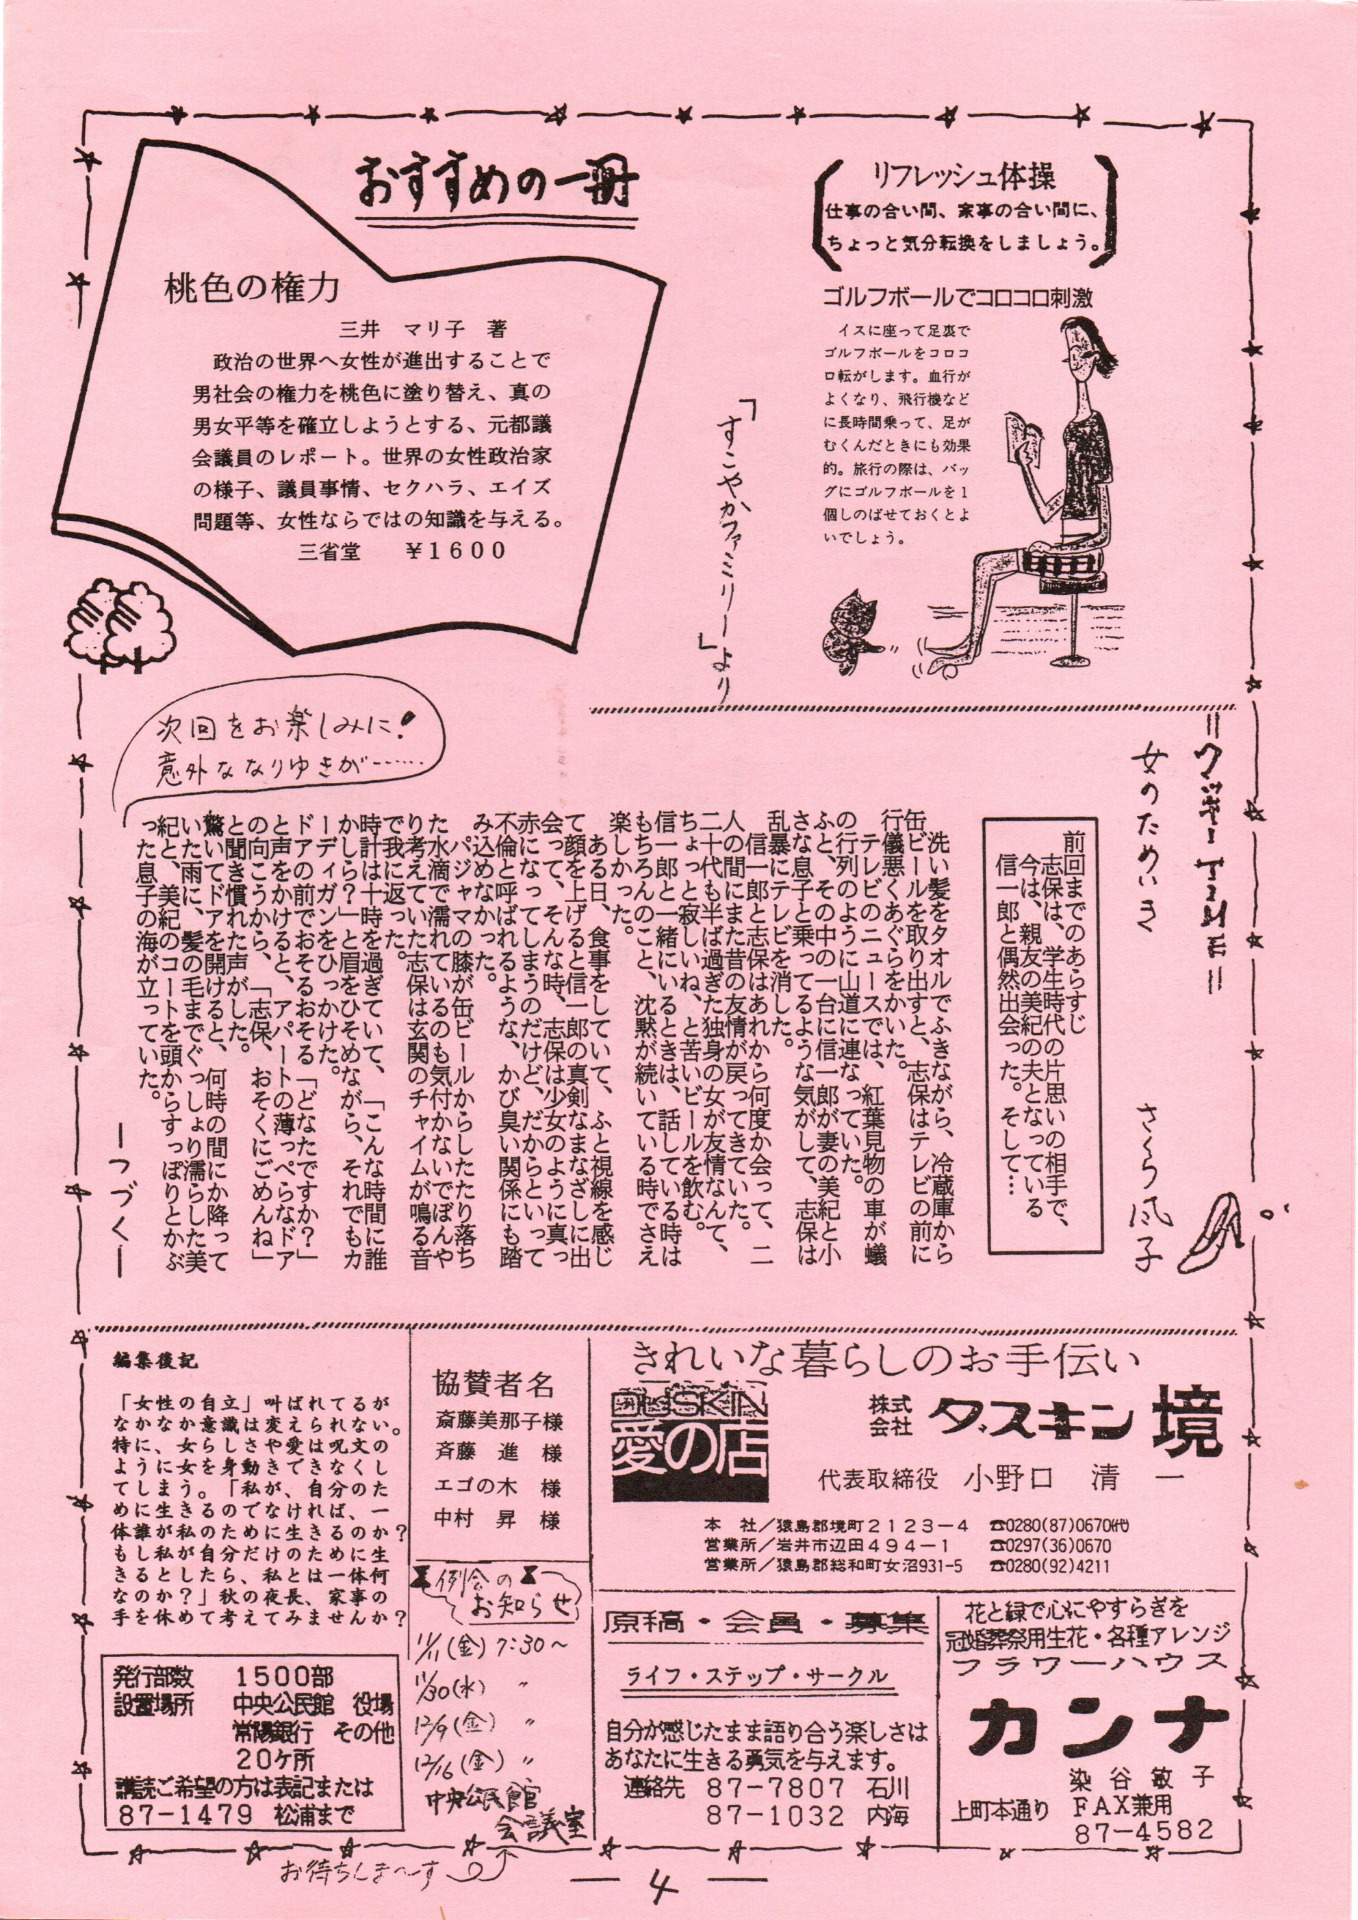 おすすめの一冊
桃色の権力
三井 マリ子 著
政治の世界へ女性が進出することで
男社会の権力を桃色に塗り替え、真の
男女平等を確立しようとする、元都議
会議員のレポート。世界の女性政治家
の様子、議員事情、セクハラ、エイズ
問題等、女性ならではの知識を与える。
三省堂 ￥1600
リフレッシュ体操
仕事の合い間、家事の合い間に、
ちょっと気分転換をしましょう。
ゴルフボールでコロコロ刺激
イスに座って足裏で
ゴルフボールをコロコ
ロ転がします。血行が
よくなり、飛行機など
に長時間乗って、足が
むくんだときにも効果
的。旅行の際は、バッ
グにゴルフボールを1
個しのばせておくとよ
いでしょう。
「すこやかファミリー」より
女のためいき
さくら風子
前回までのあらすじ
志保は、学生時代の片思いの相手で、
今は、親友の美紀の夫となっている
信一郎と偶然出会った。そして…
洗い髪をタオルでふきながら、冷蔵庫から
缶ビールを取り出すと、志保はテレビの前に
行儀悪くあぐらをかいた。
テレビのニュースでは、紅葉見物の車が蟻
の行列のように山道に連なっていた。
ふと、その中の一台に信一郎が妻の美紀と小
さな息子と乗ってるような気がして、志保は
乱暴にテレビを消した。
信一郎と志保はあれから何度か会って、二
人の間にまた昔の友情が戻ってきていた。
二十代も半ば過ぎた独身の女が友情なんて、
ちょっと寂しいね、と苦いビールを飲む。
信一郎と一緒にいるときは、話している時は
もちろんのこと、沈黙が続いている時でさえ
楽しかった。
ある日、食事をしていて、ふと視線を感じ
て顔を上げると信一郎の真剣なまなざしに出
会って、そんな時、志保は少女のように真っ
赤になってしまうのだけど、だからといって
不倫と呼ばれるような、かび臭い関係にも踏
み込めなかった。
パジャマの膝が缶ビールからしたたり落ち
た水滴で濡れているのも気付かないでぼんや
り考えていた志保は玄関のチャイムが鳴る音
で我に返った。
時計は十時を過ぎていて、「こんな時間に誰
かしら？」と眉をひそめながら、それでもカ
ーディガンをひっかけた。
ドアの前でおそるおそる「どなたですか？」
と声をかけると、アパートの薄っぺらなドア
の向こうから、「志保、おそくにごめんね」
と聞き慣れた声がした。
驚いてドアを開けると、何時の間にか降って
いた雨に、髪の毛までぐっしょり濡らした美
紀と、美紀のコートを頭からすっぽりとかぶ
った息子の海が立っていた。
ーつづくー
次回をお楽しみに！
意外ななりゆきが……
編集後記
「女性の自立」叫ばれてるが
なかなか意識は変えられない。
特に、女らしさや愛は呪文の
ように女を身動きできなくし
てしまう。「私が、自分のた
めに生きるのでなければ、一
体誰が私のために生きるのか？
もし私が自分だけのために生
きるとしたら、私とは一体何
なのか？」秋の夜長、家事の
手を休めて考えてみませんか？
発行部数 1500部
設置場所 中央公民館 役場
常陽銀行 その他
20ケ所
講読ご希望の方は表記または
87-1479 松浦まで
協賛者名
斎藤美那子様
斉藤 進 様
エゴの木 様
中村 昇 様
例会の
お知らせ
11/11(金) 7:30～
11/30(水) 〃
12/9(金) 〃
12/16(金) 〃
中央公民館
会議室
お待ちしま～す
きれいな暮らしのお手伝い
DUSKIN
愛の店
株式会社 ダスキン 境
代表取締役 小野口 清一
本 社／猿島郡境町2123-4 ☎0280(87)0670代
営業所／岩井市辺田494-1 ☎0297(36)0670
営業所／猿島郡総和町女沼931-5 ☎0280(92)4211
原稿・会員・募集
ライフ・ステップ・サークル
自分が感じたまま語り合う楽しさは
あなたに生きる勇気を与えます。
連絡先 87-7807 石川
87-1032 内海
花と緑で心にやすらぎを
冠婚葬祭用生花・各種アレンジ
フラワーハウス
カンナ
染谷敏子
上町本通り FAX兼用
87-4582
― 4 ―